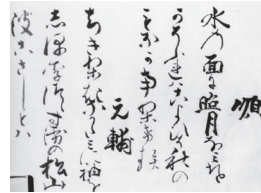 順
水の面に照月なみを
かそふれはこよひそ秋の
元輔
ちきりきなかたみに袖を
しほりつゝすゑの松山
波こさしとは